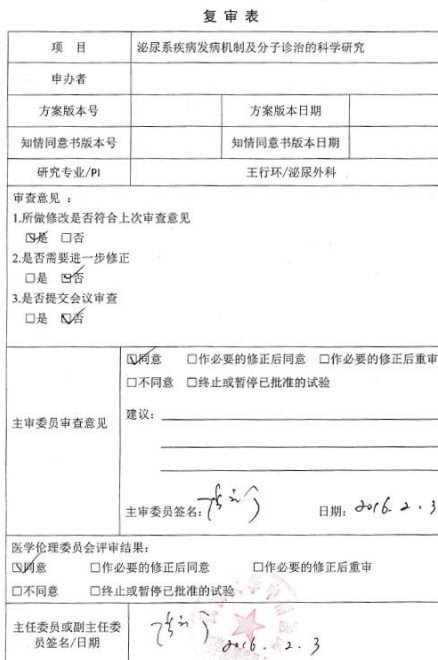 复审表
项 目 泌尿系疾病发病机制及分子诊治的科学研究
申办者
方案版本号 方案版本日期
知情同意书版本号 知情同意书版本日期
研究专业/PI 王行环/泌尿外科
审查意见：
1.所做修改是否符合上次审查意见
☑是 □否
2.是否需要进一步修正
□是 ☑否
3.是否提交会议审查
□是 ☑否
主审委员审查意见
☑同意 □作必要的修正后同意 □作必要的修正后重审
□不同意 □终止或暂停已批准的试验
建议：
主审委员签名： 日期：2016.2.3
医学伦理委员会评审结果：
☑同意 □作必要的修正后同意 □作必要的修正后重审
□不同意 □终止或暂停已批准的试验
主任委员或副主任委
员签名/日期
2016.2.3